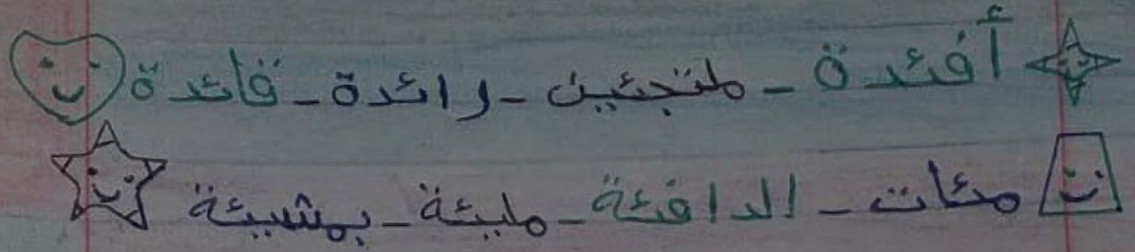 أفئدة - ملتجئين - رائدة - قائدة
مئات - الدافئة - مليئة - بمشيئة